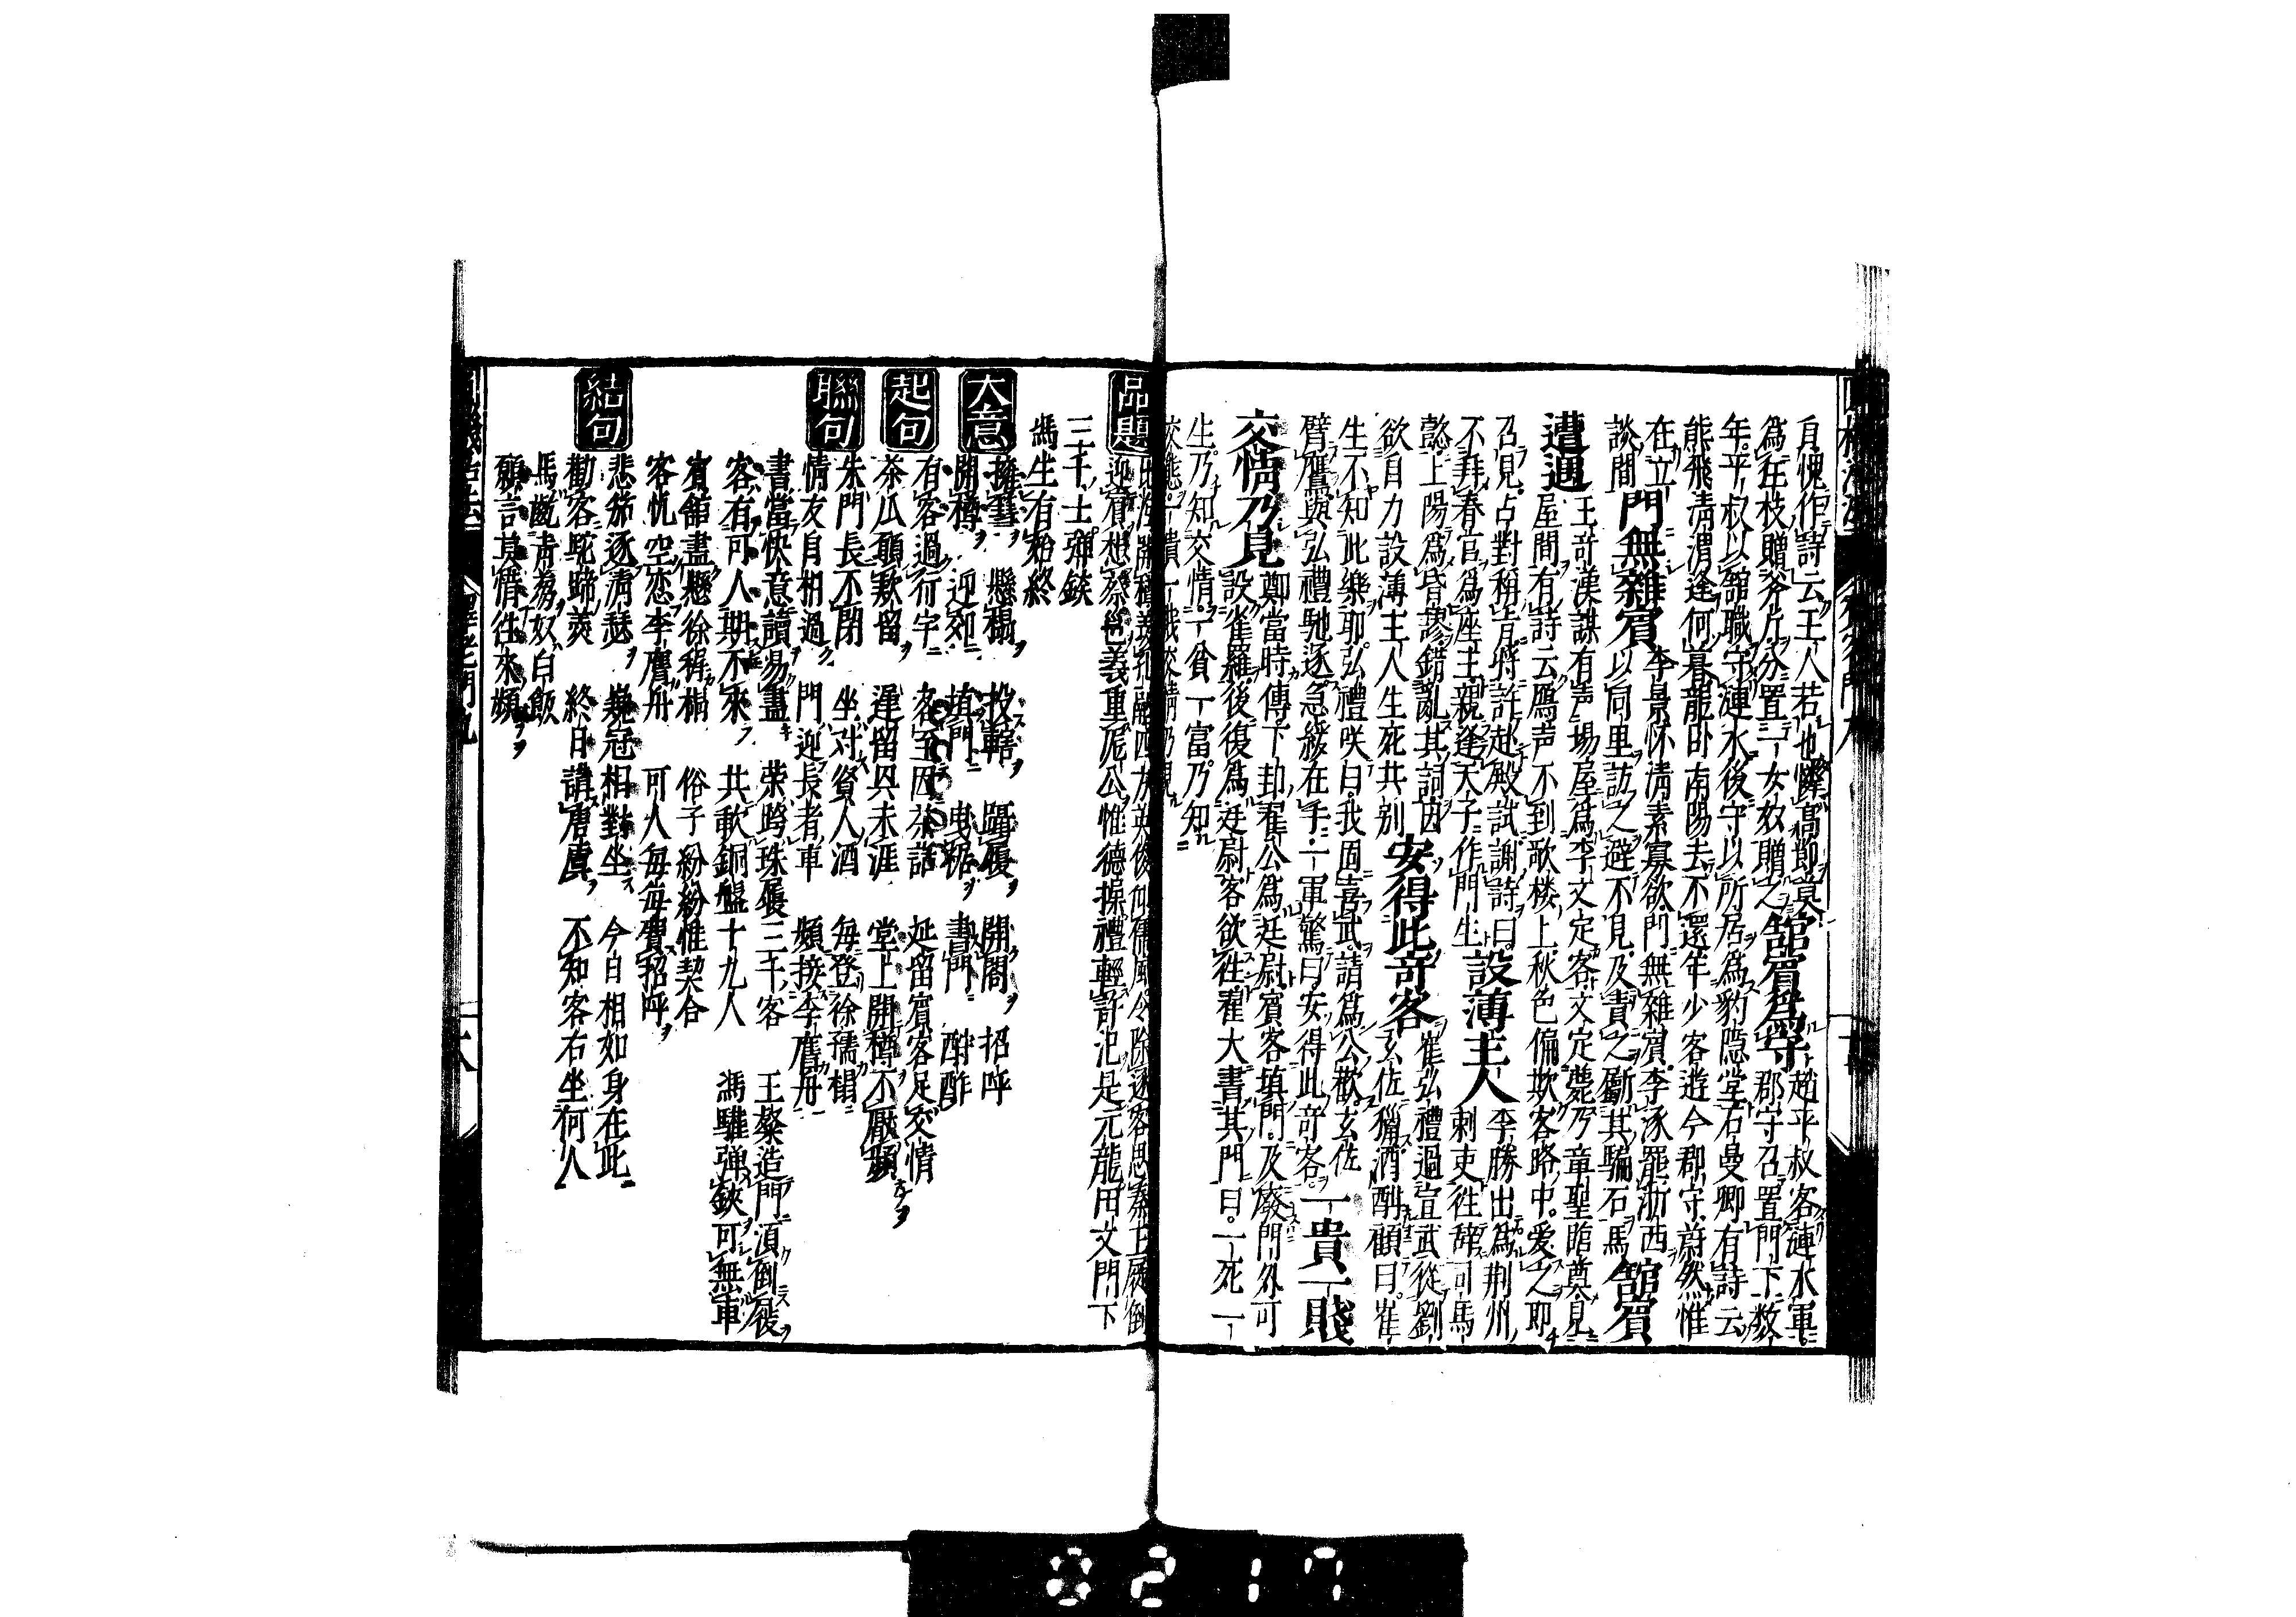 自愧作詩云王人若也憐高節莫
爲在枝贈斧斤分置一女奴贈之館賓爲守郡守召置門下教
趙平叔客漣水軍
年平叔以館職守漣水後守以所居爲豹隱堂石曼卿有詩云
熊飛清渭逢何暮龍卧南陽去不還年少客遊今郡守蔚然惟
在立門無雜賓李景怀清素寡欲門無雜賓李涿罷浙西
談間以同里訪之避不見及責之斷其騙石馬館賓
遭遇王竒漢謀有声場屋爲李文定客文定薨乃章聖臨奠見
屋間有詩云鴈声不到歌楼上秋色偏欺客路中愛之即
召見占對稱㫖特許赴殿試謝詩曰
不拜春官爲座主親逢天子作門生設薄主人李勝出爲荆州
刺吏往辞司馬
懿上陽爲昏謬錯亂其詞因
欲自力設薄主人生死共别安得此竒客崔弘禮過宣武從劉
玄佐獵酒酣顧曰崔
生不知此樂耶弘禮咲曰我固喜武請爲公歡玄佐
臂鷹與弘禮馳逐急緩在手一軍驚曰安得此竒客一貴一賤
交情乃見鄭當時傳下邽翟公爲廷尉賓客填門及廢門外可
設雀羅後復爲廷尉客欲往翟大書其門曰一死一
生乃知交情一貧一富乃知
交態一貴一賤交情乃見
品題
迎賓想蔡邕義重厖公惟德操禮輕許汜是元龍田文門下
三千士彈鋏
馮生有始終
大意擁篲 懸榻 投轄 躡履 開閤 招呼
開樽 迎郊 填門 曳裾 書門 酣酢
起句有客過行宇 客至因茶話 延留賓客足交情
茶瓜願歎留 遲留興未涯 堂上開樽不厭頻
聯句朱門長不閉 坐对貧人酒 毎登徐孺榻
情友自相過 門迎長者車 頻接李膺舟
書當快意讀易盡 荣跨珠履三千客 王粲造門湏倒屣
客有可人期不來 共歃銅盤十九人 馮驩弹鋏可無車
賓舘盡懸徐穉榻 俗子紛紛惟契合
客忱空恋李膺舟 可人毎毎費招呼
結句悲笳逐清瑟 峩冠相對坐 今日相如身在此
勸客駝蹄羮 終日講唐虞 不知客右坐何人
馬齕青蒭奴白飯
願言其情往來頻
0217